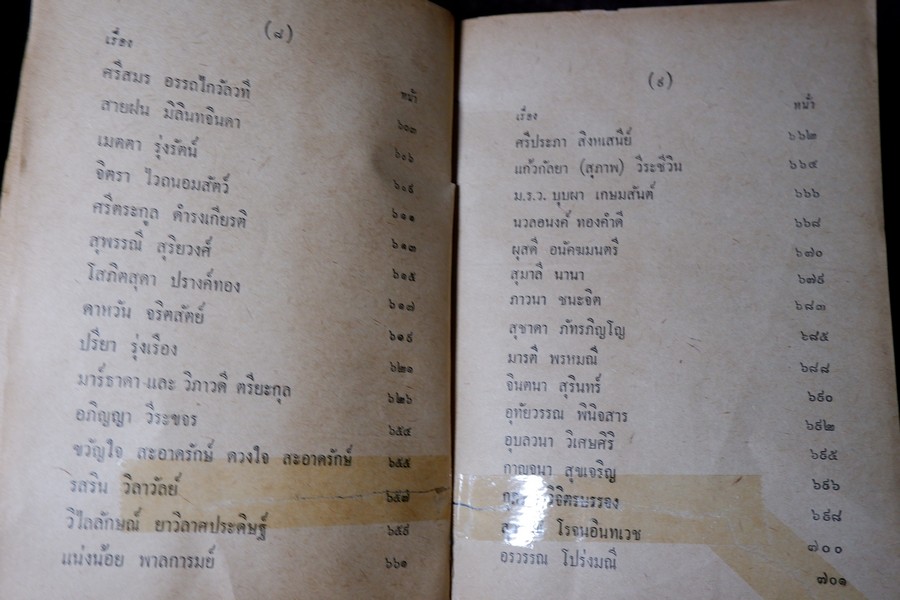 (๘)
เรื่อง หน้า
ศรีสมร อรรถไกวัลวที ๖๐๓
สายฝน มิลินทจินดา ๖๐๖
เมตตา รุ่งรัตน์ ๖๐๙
จิตรา ไวถนอมสัตว์ ๖๑๑
ศรีตระกูล ดำรงเกียรติ ๖๑๓
สุพรรณี สุริยวงศ์ ๖๑๕
โสภิตสุดา ปรางค์ทอง ๖๑๗
ดาหวัน จริตสัตย์ ๖๑๙
ปรียา รุ่งเรือง ๖๒๑
มาร์ธาดา และ วิภาวดี ตรียะกุล ๖๒๖
อภิญญา วีระขจร ๖๕๔
ขวัญใจ สะอาดรักษ์ ดวงใจ สะอาดรักษ์ ๖๕๕
รสริน วิลาวัลย์ ๖๕๗
วิไลลักษณ์ ยาวิลาศประดิษฐ์ ๖๕๙
แน่งน้อย พาลการมย์ ๖๖๑
(๙)
เรื่อง หน้า
ศรีประภา สิงหเสนีย์ ๖๖๒
แก้วกัลยา (สุภาพ) วีระชีวิน ๖๖๔
ม.ร.ว. บุบผา เกษมสันต์ ๖๖๖
นวลอนงค์ ทองคำดี ๖๖๘
ผุสดี อนัคฆมนตรี ๖๗๐
สุมาลี นานา ๖๗๙
ภาวนา ชนะจิต ๖๘๓
สุชาดา ภัทรภิญโญ ๖๘๕
มารตี พรหมณี ๖๘๘
จินตนา สุรินทร์ ๖๙๐
อุทัยวรรณ พินิจสาร ๖๙๒
อุบลวนา วิเศษศิริ ๖๙๕
กาญจนา สุขเจริญ ๖๙๖
วิจิตรบรรจง ๖๙๘
โรจนอินทเวช ๗๐๐
อรวรรณ โปร่งมณี ๗๐๑